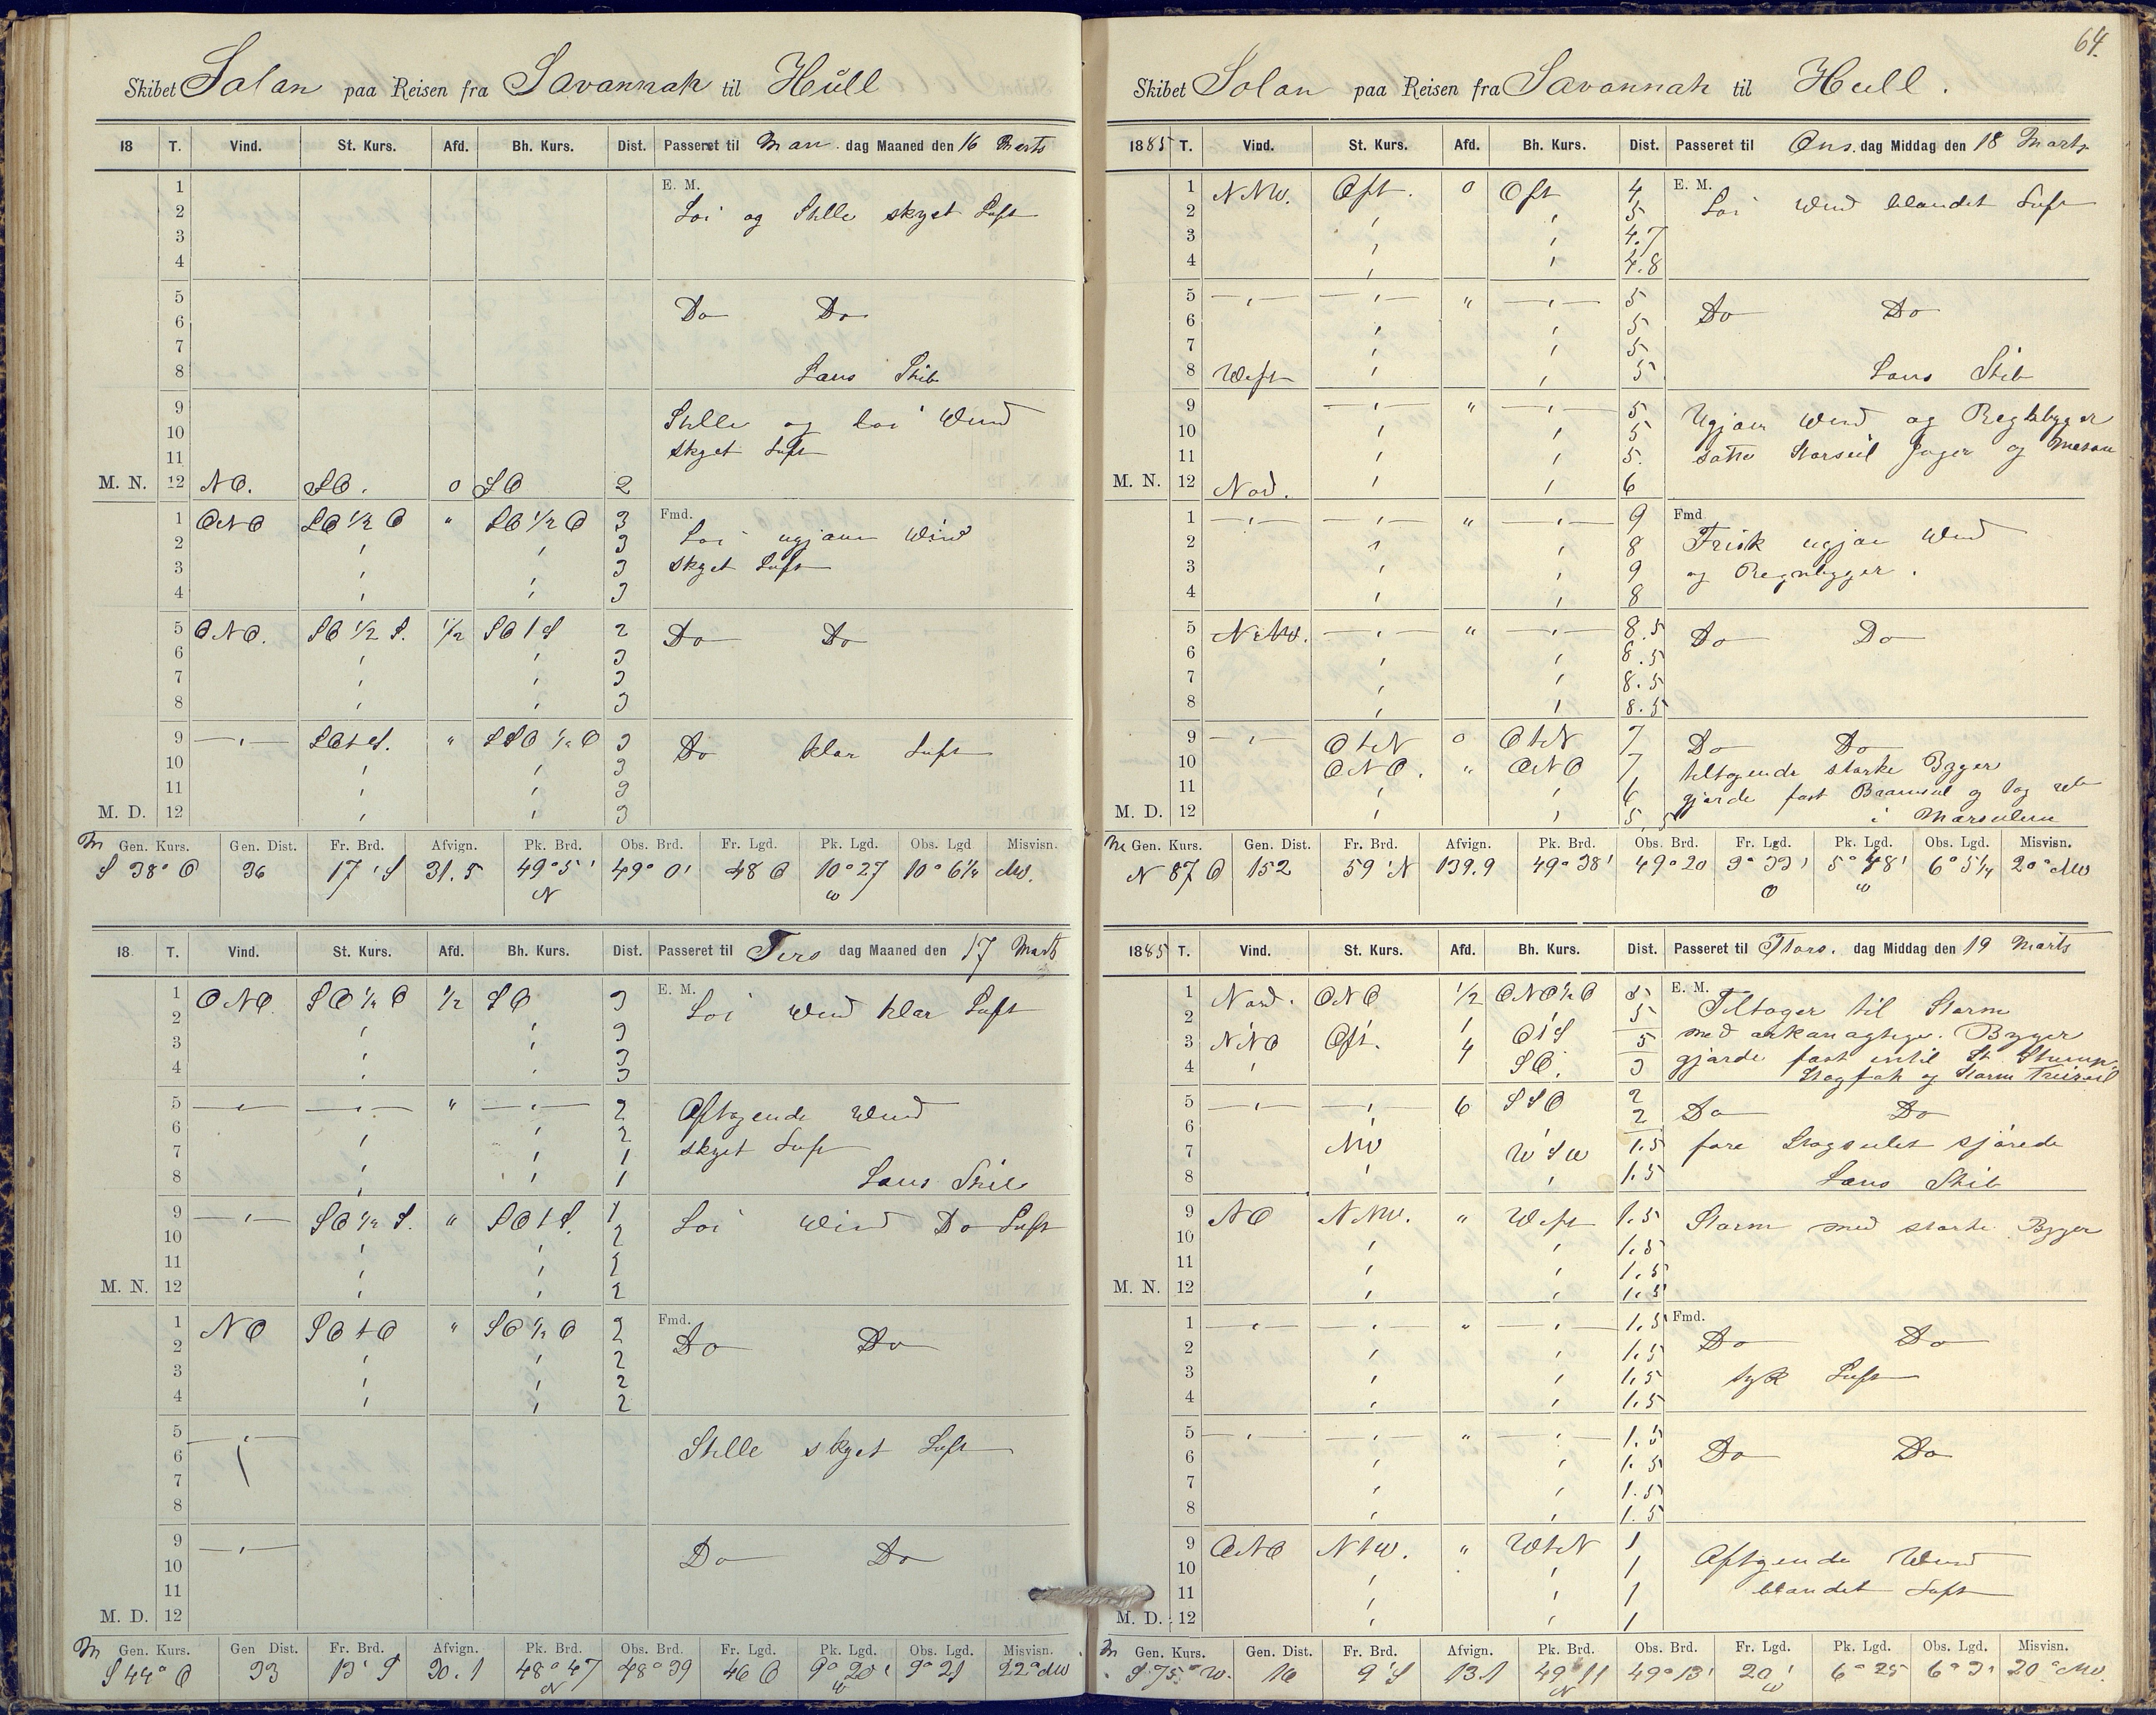 64.
Skibet Solan paa Reisen fra Savannah til Hull
18 T. Vind. St. Kurs. Afd. Bh. Kurs. Dist. Passeret til Man. dag Maaned den 16 Marts
1 E. M.
2 Loi og Stille skyet Luft
3
4
5 Do Do
6
7
8 Læns Skib
9 Stille og loi Wind
10 skyet Luft
11
M. N. 12 NO. SO. 0 SO 2
1 ONO SO 1/2 O " SO 1/2 O 3 Fmd.
2 ' ' 3 Loi ugjævn Wind
3 ' ' 3 skyet Luft
4 ' ' 3
5 ONO. SO 1/2 S. 1/2 SO t S 2 Do Do
6 ' ' 3
7 ' ' 3
8 ' ' 3
9 —"— SO t S. " SSO 1/2 O 3 Do klar Luft
10 ' ' 3
11 ' ' 3
M. D. 12 ' ' 3
M Gen. Kurs. Gen. Dist. Fr. Brd. Afvign. Pk. Brd. Obs. Brd. Fr. Lgd. Pk. Lgd. Obs. Lgd Misvisn.
S 38° O 36 17' S 31.5 49° 5' N 49° 0' 48 O 10° 27 W 10° 6 1/4 NW.
18 T. Vind. St. Kurs. Afd. Bh. Kurs. Dist. Passeret til Tirs dag Maaned den 17 Marts
1 ONO. SO 1/2 O 1/2 SO 3 E. M.
2 ' ' 3 Loi Wind klar Luft
3 ' ' 3
4 ' ' 3
5 —"— —"— " —"— 2 Aftagende Wind
6 ' ' 2 skyet Luft
7 ' ' 1
8 ' ' 1 Læns Skib
9 —"— SO 1/2 S. " SO t S. 1 Loi Wind Do Luft
10 ' ' 2
11 ' ' 2
M. N. 12 ' ' 2
1 NO SO t O " SO 1/2 O 2 Fmd.
2 ' ' 2 Do Do
3 ' ' 2
4 ' ' 2
5 —"— Stille skyet Luft
6
7
8
9 —"— Do Do
10
11
M. D. 12
M Gen. Kurs. Gen Dist. Fr. Brd. Afvign. Pk. Brd. Obs. Brd. Fr. Lgd. Pk. Lgd. Obs. Lgd. Misvisn.
S 44° O 33 13' S 30.1 48° 47 N 48° 39 46 O 9° 20' W 9° 21 22° NW
Skibet Solan paa Reisen fra Savannah til Hull.
1885 T. Vind. St. Kurs. Afd. Bh. Kurs. Dist. Passeret til Ons. dag Middag den 18 Marts
1 NNW. Ost. 0 Ost 4 E. M.
2 ' ' 5 Loi Wind blandet Luft
3 ' ' 4.7
4 ' ' 4.8
5 —"— —"— " —"— 5 Do Do
6 ' ' 5
7 ' ' 5
8 West ' ' 5 Læns Skib
9 —"— " —"— 5 Ugjævn Wind og Regnbyger
10 ' ' 5 satte Storseil Jager og Mesan
11 ' ' 5.
M. N. 12 Nord. ' ' 6
1 —"— —"— " —"— 9 Fmd
2 ' ' 8 Frisk ugjæv Wind
3 ' ' 9 og Regnbyger.
4 ' ' 8
5 NNW. —"— " —"— 8.5 Do Do
6 ' ' 8.5
7 ' ' 8.5
8 ' ' 8.5
9 —"— O t N 0 O t N 7 Do Do
10 ONO. " ONO 7 tiltagende starke Byger
11 ' ' 6 gjorde fast Bramseil og tog reb
M. D. 12 ' ' 5.5 i Marseilene
M Gen. Kurs. Gen. Dist. Fr. Brd. Afvign. Pk. Brd. Obs. Brd. Fr. Lgd. Pk. Lgd. Obs. Lgd. Misvisn.
N 87 O 152 59' N 139.9 49° 38' 49° 20 3° 33' O 5° 48' W 6° 5 1/4 20° NW
1885 T. Vind. St. Kurs. Afd. Bh. Kurs. Dist. Passeret til Thors. dag Middag den 19 Marts
1 Nord. ONO 1/2 ONO 1/2 O 5 E. M.
2 ' ' 5 Tiltager til Storm
3 NNO Ost. O t S 5 med orkanagtige. Byger
4 ' 4 SO. 3 gjorde fast intil St. Stump.
Stagfok og Storm Treiseil
5 —"— —"— 6 SSO 2 Do Do
6 ' 2
7 NW WSW 1.5 fore Stagseilet
8 ' ' 1.5 Læns Skib
9 NO NNW. " West 1.5 Storm med starke Byger
10 ' ' 1.5
11 ' ' 1.5
M. N. 12 ' ' 1.5
1 —"— —"— " —"— 1.5 Fmd.
2 ' ' 1.5 Do Do
3 ' ' 1.5 tyk Luft
4 ' ' 1.5
5 —"— —"— " —"— 1.5 Do Do
6 ' ' 1.5
7 ' ' 1.5
8 ' ' 1.5
9 ONO N t W. " W t N 1
10 ' ' 1 Aftagende Wind
11 ' ' 1 blandet Luft
M. D. 12 ' ' 1
M Gen. Kurs. Gen. Dist. Fr. Brd. Afvign. Pk. Brd. Obs. Brd. Fr. Lgd. Pk. Lgd. Obs. Lgd. Misvisn.
S 75° W. 16 9' S 13.1 49° 11 N 49° 13' 20' W 6° 25 6° 3' 20° NW.